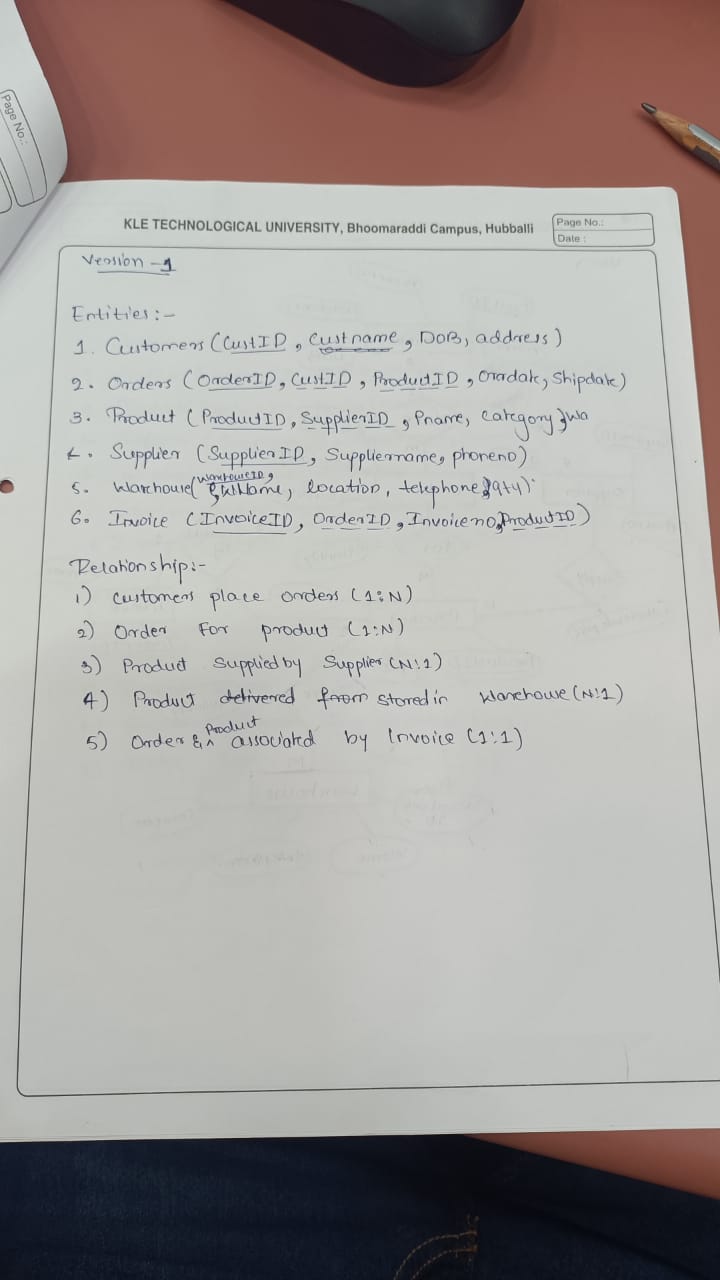 Page No.:
KLE TECHNOLOGICAL UNIVERSITY, Bhoomaraddi Campus, Hubballi
Page No.:
Date :
Version - 1
Entities :-
1. Customers (CustID, Custname, DOB, address)
2. Orders (OrderID, CustID, ProductID, Orderdate, Shipdate)
3. Product (ProductID, SupplierID, Pname, category)
4. Supplier (SupplierID, Suppliername, phoneno)
5. Warehouse (WarehouseID, Name, location, telephone, qty)
6. Invoice (InvoiceID, OrderID, Invoiceno, ProductID)
Relationship:-
1) customers place orders (1:N)
2) Order For product (1:N)
3) Product Supplied by Supplier (N:1)
4) Product delivered from stored in Warehouse (N:1)
5) Order & Product associated by Invoice (1:1)